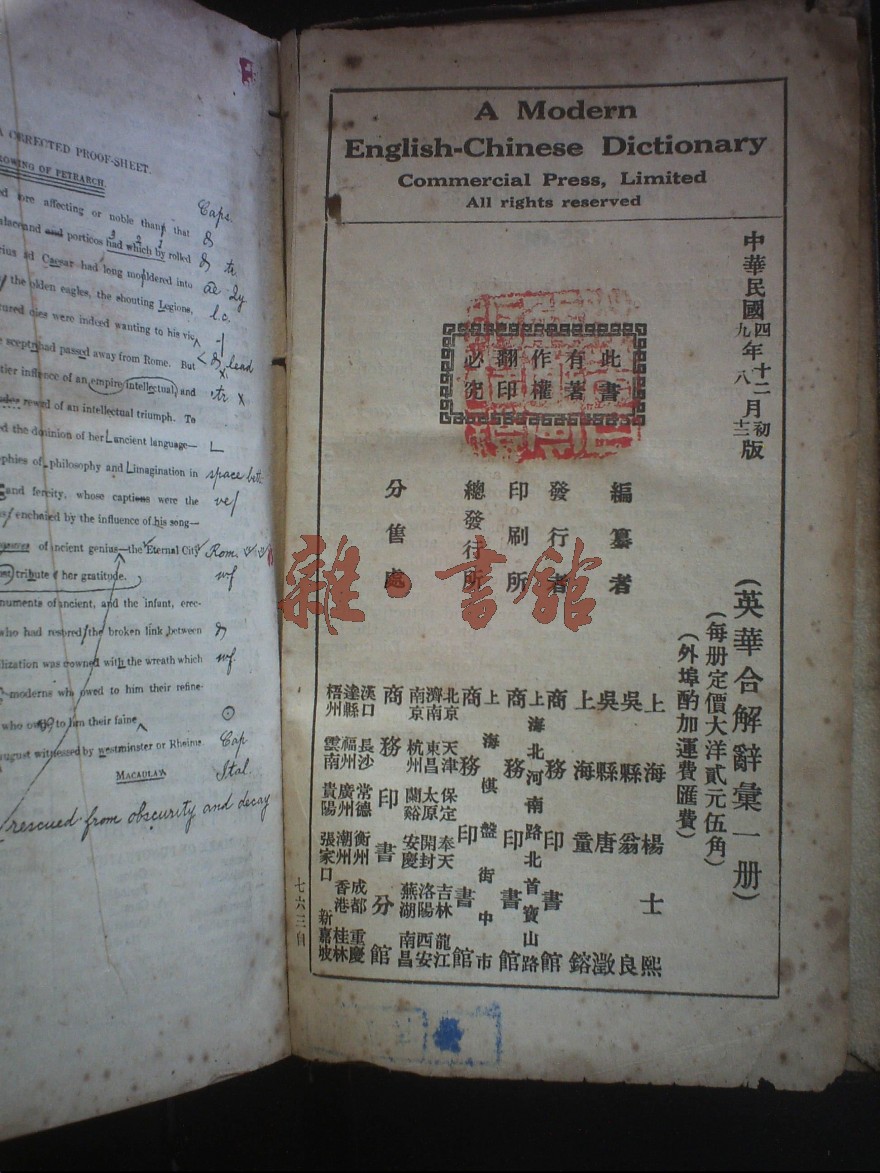 A CORRECTED PROOF-SHEET.
CROWNING OF PETRARCH.
ore affecting or noble than that
Caps.
and portions had which by rolled
3 2 1
tr
ad Caesar had long mouldered into
æ
the olden eagles, the shouting Legions,
l.c.
tured cies were indeed wanting to his vic
had passed away from Rome. But
lead
tier inflence of an empire intellectual, and
tr x
of an intellectual triumph. To
ed the dominion of her ancient language—
ophies of philosophy and imagination in
space bett
and fercity, whose captions were the
ve/
enchained by the influence of his song—
of ancient genius—the Eternal City
Rom.
tribute f her gratitude.
wf
numents of ancient, and the infant, erec-
who had restred the broken link between
lization was cowned with the wreath which
wf.
moderns who owed to him their refine-
who owe to him their faine
⊙
august witnessed by westminster or Rheims.
Cap
MACAULAY
Ital.
rescued from obscurity and decay
A Modern
English-Chinese Dictionary
Commercial Press, Limited
All rights reserved
中華民國四年十二月初版
九 八 十三
此書
有著
作權
翻印
必究
(英華合解辭彙一册)
(每册定價大洋貳元伍角)
(外埠酌加運費匯費)
編纂者
上海楊士熙
吳縣翁良
吳縣唐澂
上海童鎔
發行者
商務印書館
印刷所
上海北河南路北首寶山路
商務印書館
總發行所
上海棋盤街中市
商務印書館
分售處
北京 天津 保定 奉天 吉林 龍江
濟南 東昌 太原 開封 洛陽 西安
南京 杭州 蘭谿 安慶 蕪湖 南昌
商務印書分館
漢口 長沙 常德 衡州 成都 重慶
達縣 福州 廣州 潮州 香港 桂林
梧州 雲南 貴陽 張家口 新嘉坡
七六三自
雜·書館